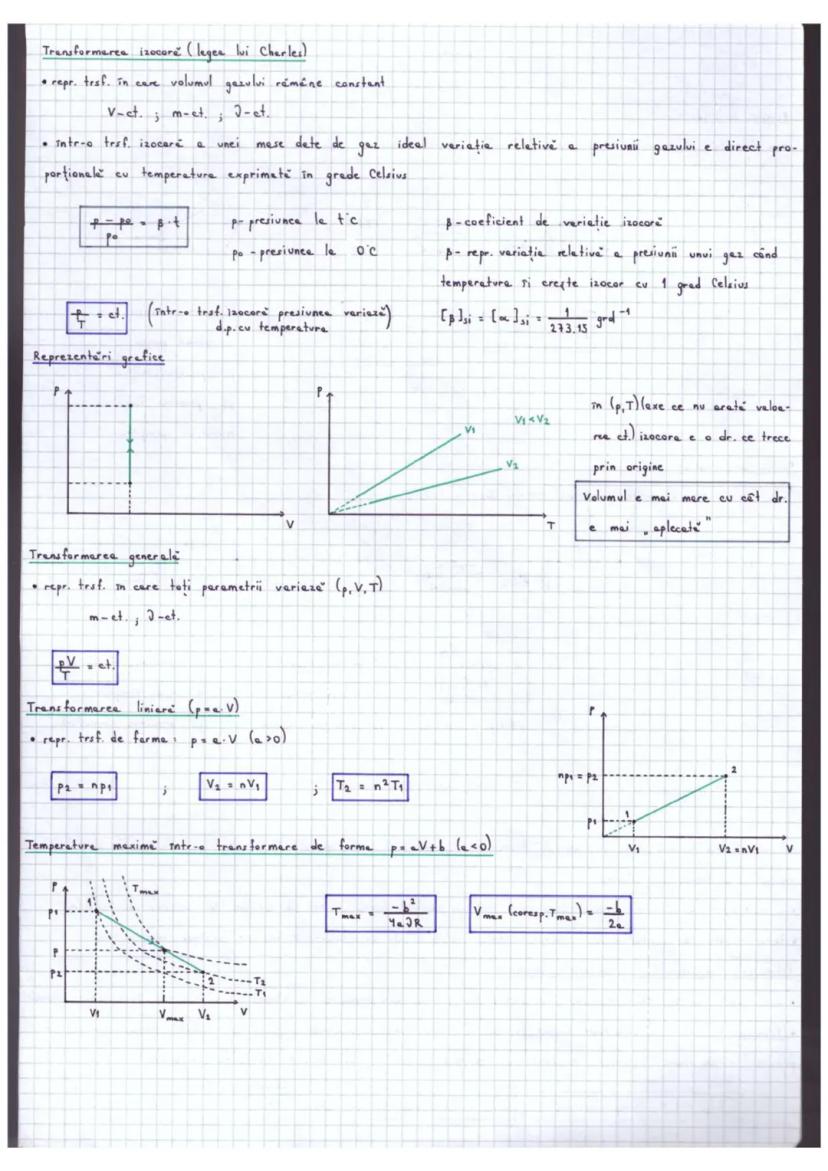 Transformarea izocoră (legea lui Charles)
• repr. trsf. în care volumul gazului rămâne constant
V-ct. ; m-ct. ; ϑ-ct.
• într-o trsf. izocoră a unei mase date de gaz ideal variația relativă a presiunii gazului e direct pro-
porțională cu temperatura exprimată în grade Celsius
p - p0 / p0 = β·t
p- presiunea la t°C
β - coeficient de variație izocoră
p0 - presiunea la 0°C
β - repr. variația relativă a presiunii unui gaz când
temperatura si crește izocor cu 1 grad Celsius
p/T = ct.
(într-o trsf. izocoră presiunea variază)
d.p. cu temperatura
[β]si = [α]si = 1/273,15 grd⁻¹
Reprezentări grafice
P
V
P
V1
V1 < V2
V2
T
în (p,T) (axe ce nu arată valoa-
rea ct.) izocora e o dr. ce trece
prin origine
Volumul e mai mare cu cât dr.
e mai „aplecată"
Transformarea generală
• repr. trsf. în care toți parametrii variază (p,V,T)
m-ct. ; ϑ-ct.
pV/T = ct.
Transformarea liniară (p=a·V)
• repr. trsf. de forma: p = a·V (a>0)
p2 = np1 ; V2 = nV1 ; T2 = n²T1
P
np1 = p2
2
p1
1
V1
V2 = nV1
V
Temperatura maximă într-o transformare de forma p=aV+b (a<0)
P
Tmax
p1
1
P
p2
2
T2
T1
V1
Vmax
V2
V
Tmax = -b²/4aϑR
Vmax (coresp. Tmax) = -b/2a